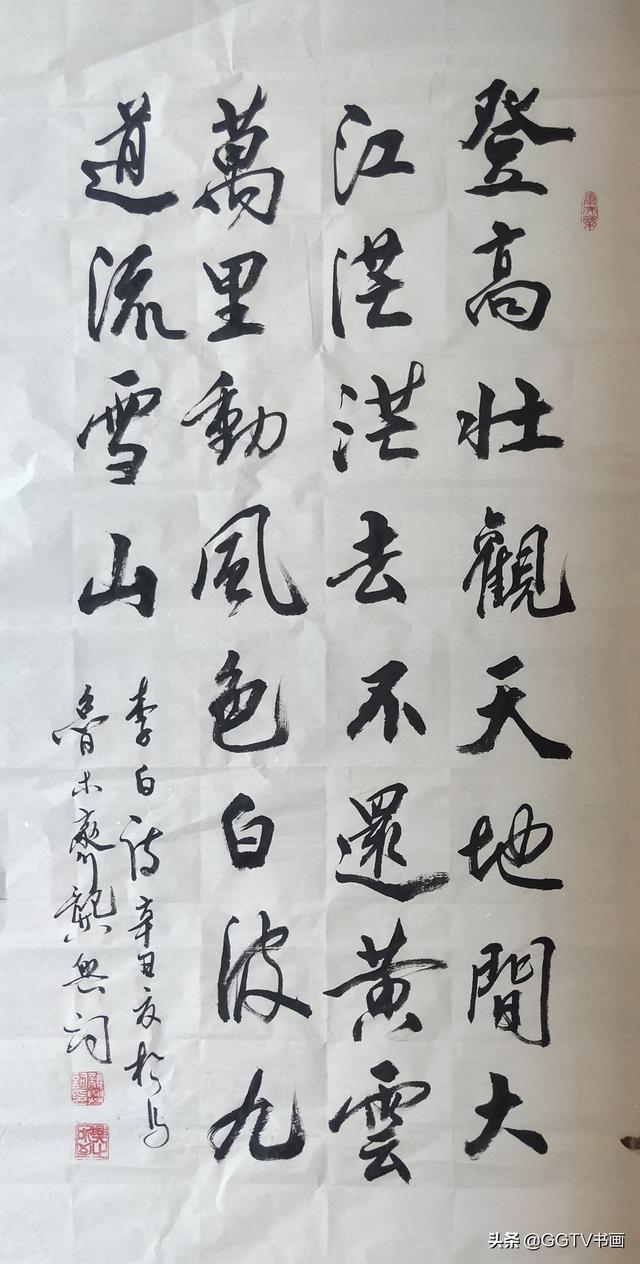 登高壯觀天地間大
江茫茫去不還黃雲
萬里動風色白波九
道流雪山
李白詩辛丑夏於烏
魯木齊龔
头条 @GGTV书画